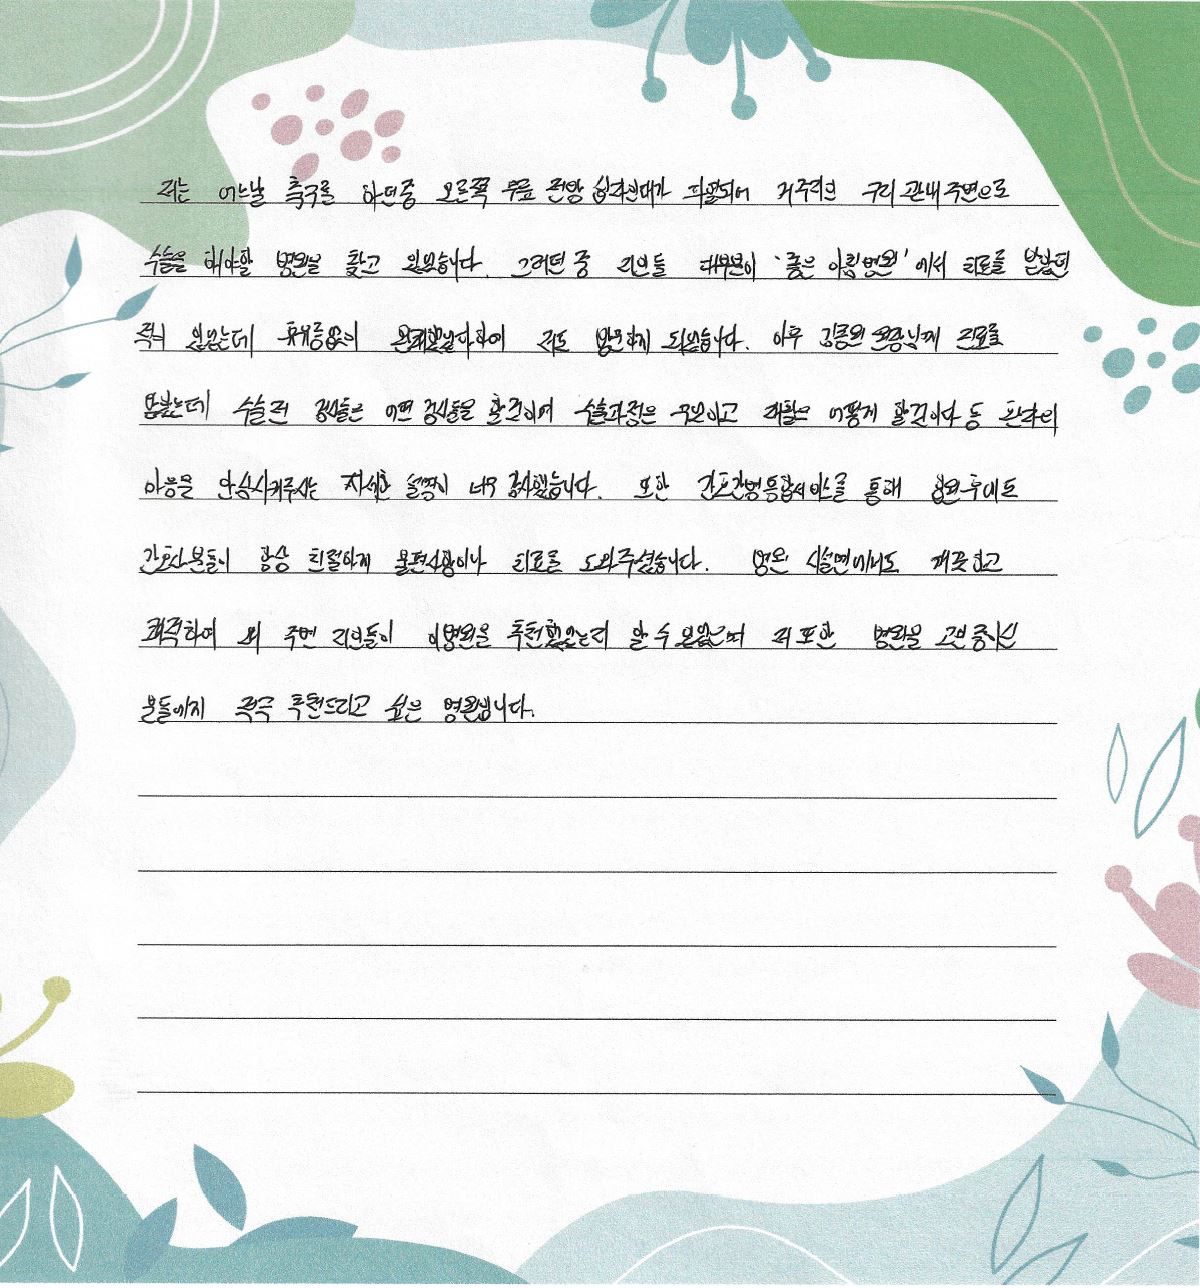 저는 어느날 축구를 하던중 오른쪽 무릎 전방 십자인대가 파열되어 거주지인 구리 관내 주변으로
수술을 해야할 병원을 찾고 있었습니다. 그러던 중 지인들 대부분이 '좋은 아침병원'에서 치료를 받았던
적이 있었는데 후유증없이 완쾌했났다하여 저도 방문하게 되었습니다. 이후 원장님께 진료를
받았는데 수술 전 검사들은 어떤 검사들을 할것이며 수술과정은 무엇이고 재활은 어떻게 할것이다 등 환자의
마음을 안심시켜주시는 자세한 설명이 너무 감사했습니다. 또한 간호간병통합서비스를 통해 입원후에도
간호사분들이 항상 친절하게 불편사항이나 치료를 도와주셨습니다. 병원 시설면에서도 깨끗하고
쾌적하여 왜 주변 지인들이 이병원을 추천했었는지 알 수 있었으며 저 또한 병원을 고민 중이신
분들에게 적극 추천드리고 싶은 병원입니다.